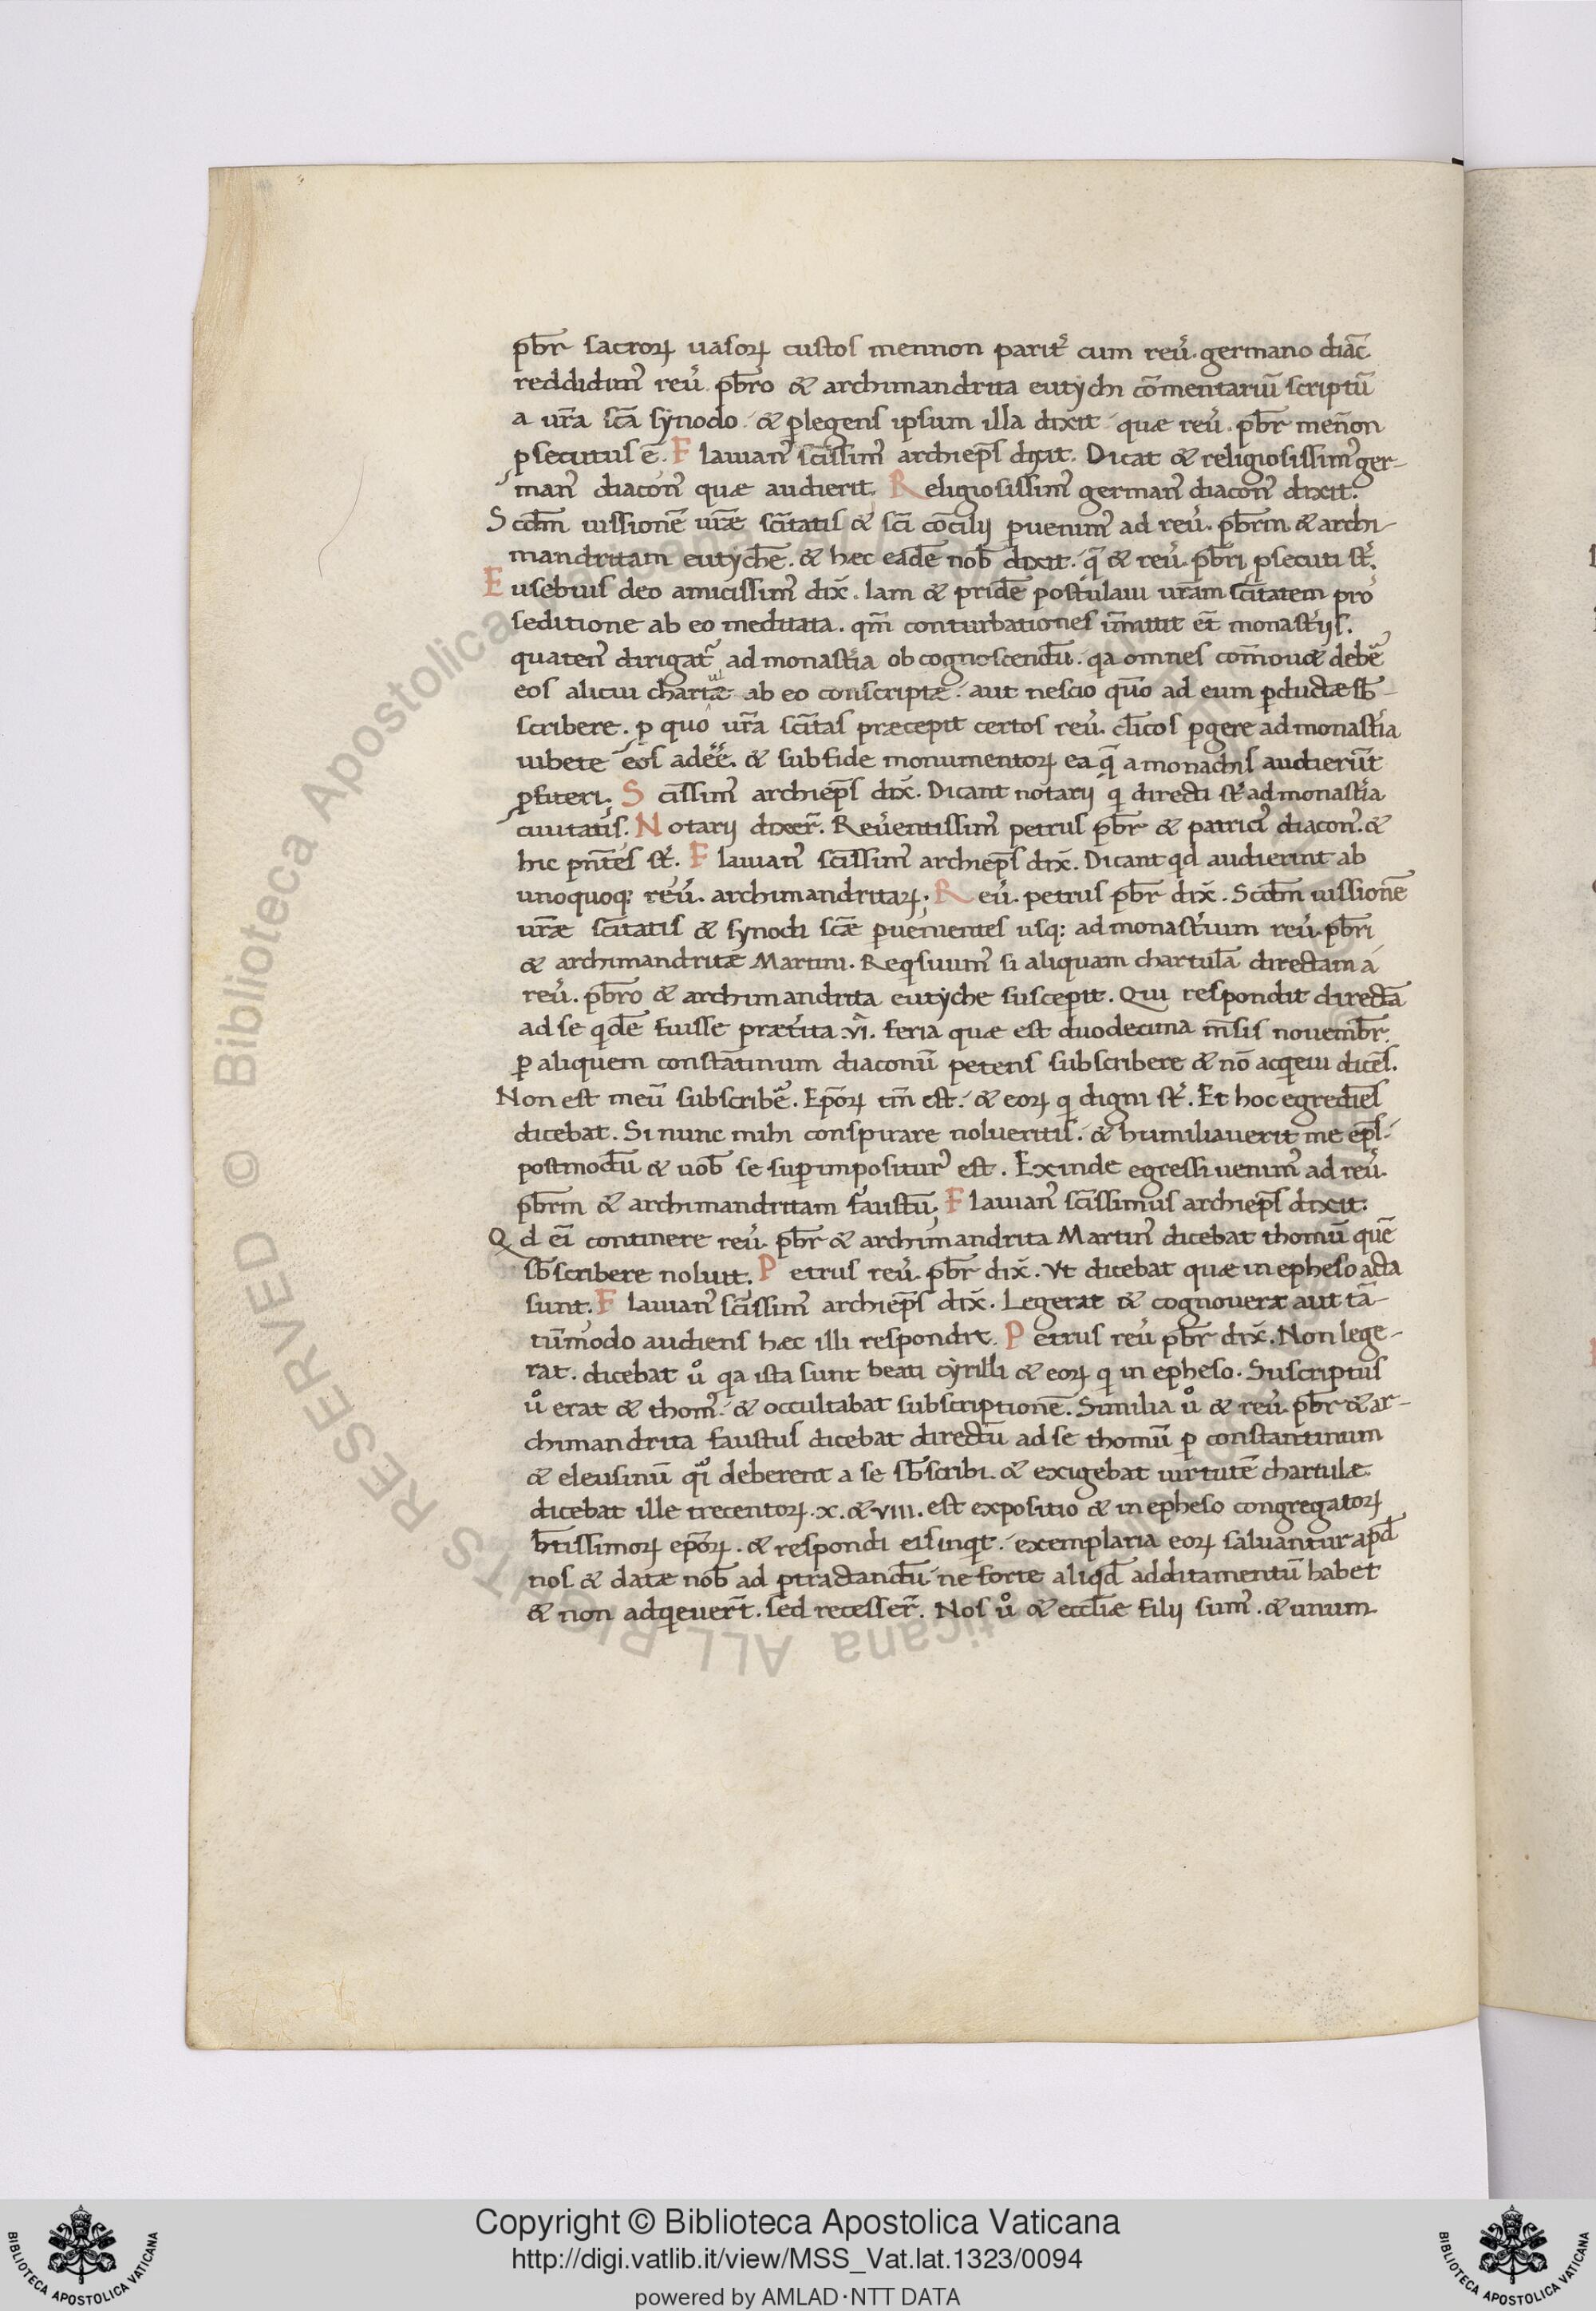 pb̄r sacroꝝ uasoꝝ custos mennon parit᷑ cum reu᷑. germano diac̄
reddidim᷒ reu᷑. pb̄ro & archimandrita eutychi cōmentariū scriptū
a ur̄a sc̄a synodo. & p̄legens ipsum illa dixit. quæ reu᷑. pb̄r men̄on
ꝓsecutus ē. Flauian᷒ sc̄issim᷒ archiep̄s dixit. Dicat & religiosissim᷒ ger-
man᷒ diacon᷒ quæ audierit. Religiosissim᷒ german᷒ diacon᷒ dixit.
Scdm̄ iussionē ur̄æ sc̄itatis & sc̄i cōcilij ꝑuenim᷒ ad reu᷑. pb̄rm & archi-
mandritam eutychē. & hæc eadē nob̄ dixit. q̄ & reu᷑. pb̄ri ꝓsecuti st᷑.
Eusebius deo amicissim᷒ dix̄. Iam & pridē postulaui ur̄am sc̄itatem pro
seditione ab eo meditata. qm̄ conturbationes im̄ittit et̄ monast᷑ijs.
quaten᷒ dirigat᷑ ad monast᷑ia ob cognoscendū. qa omnes com̄ouæ debē
eos alicui chartæ ab eo conscriptæ. aut nescio quō ad eum ꝑductæ sb̄-
scribere. ꝓ quo ur̄a sc̄itas præcepit certos reu᷑. cl̄icos ꝑgere ad monast᷑ia
iubete eos adeē. & sub fide monumentoꝝ ea q̄ a monachis audierūt
ꝓfiteri. Scīssim᷒ archiep̄s dix̄. Dicant notarij q directi st᷑ ad monast᷑ia
ciuitatis. Notarij dixer̄. Reu᷑entissim᷒ petrus pb̄r & patrici᷒ diacon᷒. &
hic pn̄tes st᷑. Flauian᷒ sc̄issim᷒ archiep̄s dix̄. Dicant qd audierint ab
unoquoq; reu᷑. archimandritaꝝ. Reu᷑. petrus pb̄r dix̄. Scdm̄ iussionē
ur̄æ sc̄itatis & synodi sc̄æ ꝑuenientes usq; ad monast᷑ium reu᷑. pb̄ri
& archimandritæ Martini. Reqsiuim᷒ si aliquam chartulā directam a
reu᷑. pb̄ro & archimandrita eutyche susceperit. Qui respondit directā
ad se qdē fuisse præt᷑ita .vi. feria quæ est duodecima m̄sis novemb̄r.
ꝑ aliquem constātinum diaconū petens subscribere & nō acqeui dicēs.
Non est meū subscribē. Ep̄oꝝ tm̄ est. & eoꝝ q digni st᷑. Et hoc egrediēs
dicebat. Si nunc mihi conspirare nolueritis. & humiliauerit me ep̄s.
postmodū & uob̄ se suꝑimpositur᷒ est. Exinde egressi uenim᷒ ad reu᷑.
pb̄rm & archimandritam faustū. Flauian᷒ sc̄issimus archiep̄s dixit.
Qd eī continere reu᷑. pb̄r & archimandrita Martin᷒ dicebat thomū quē
sb̄scribere noluit. Petrus reu᷑. pb̄r dix̄. Vt dicebat quæ in epheso acta
sunt. Flauian᷒ sc̄issim᷒ archiep̄s dix̄. Legerat & cognouerat aut tā-
tūmodo audiens hæc illi respondit. Petrus reu᷑ pb̄r dix̄. Non lege-
rat. dicebat uͦ qa ista sunt beati cyrilli & eoꝝ q in epheso. Suscriptus
uͦ erat & thom᷒. & occultabat subscriptionē. Similia uͦ & reu᷑. pb̄r & ar-
chimandrita faustus dicebat directū ad se thomū ꝑ constantinum
& eleusinū qī deberent a se sb̄scribi. & exigebat uirtutē chartulæ.
dicebat ille trecentoꝝ .x. & viii. est expositio & in epheso congregatoꝝ
b̄tissimoꝝ ep̄oꝝ. & respondi eis inqt. exemplaria eoꝝ saluantur apd̄
nos & datæ nob̄ ad ꝑtractandū. ne forte aliqd̄ additamentū habet
& non adqeuer̄t. sed recesser̄. Nos uͦ & eccl̄iæ filij sum᷒. & unum
© Biblioteca Apostolica Vaticana ALL RIGHTS RESERVED
Copyright © Biblioteca Apostolica Vaticana
http://digi.vatlib.it/view/MSS_Vat.lat.1323/0094
powered by AMLAD·NTT DATA
BIBLIOTECA APOSTOLICA VATICANA
BIBLIOTECA APOSTOLICA VATICANA